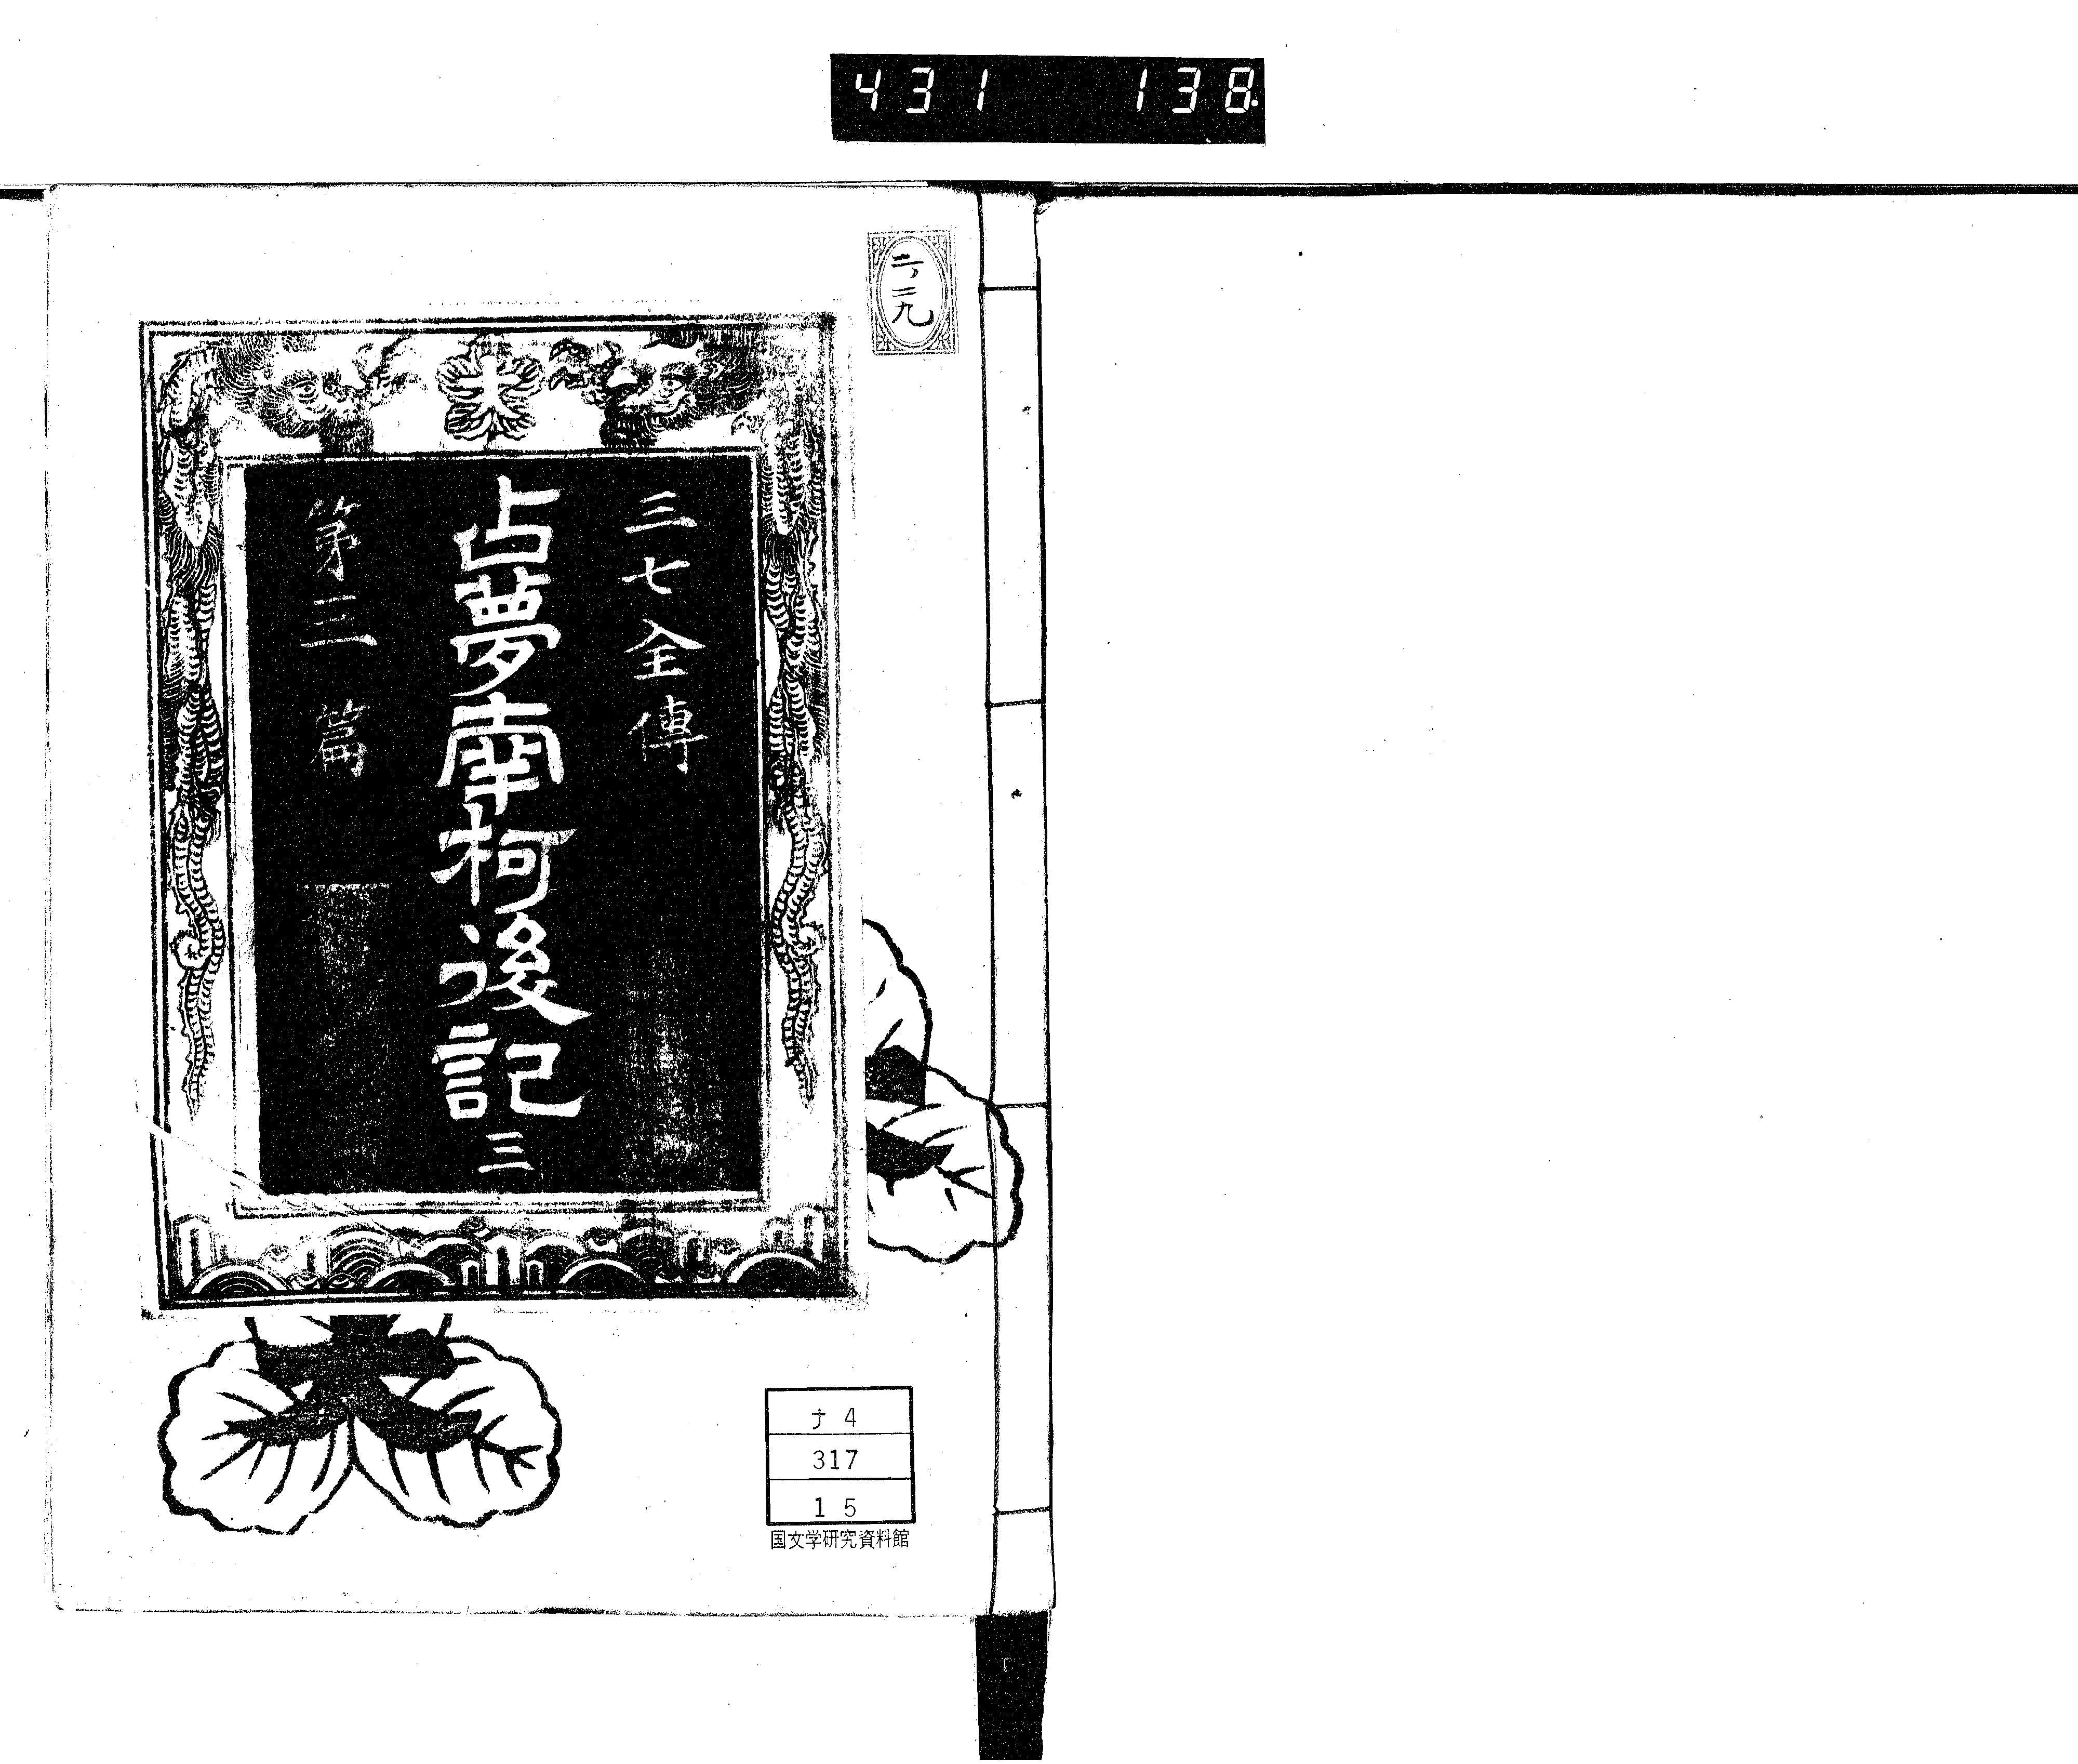 431 138
二、二九
三七全傳
占夢南柯後記 三
第三篇
ナ4
317
15
国文学研究資料館